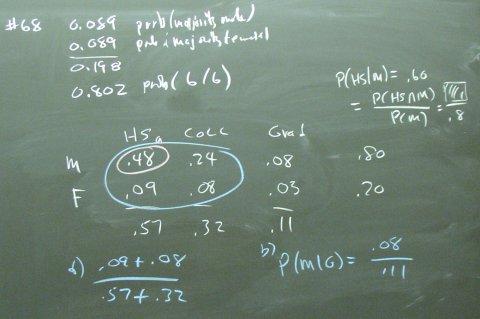 #68 0.089 prob(majority male)
0.089 prob(majority female)
0.198
0.802 prob(6/6)
P(HS|M) = .60
= P(HS∩M) / P(M) = / .8
HS Coll Grad
M .48 .24 .08 .80
F .09 .08 .03 .20
.57 .32 .11
a) .09+.08 / .57+.32
b) P(M|G) = .08 / .111